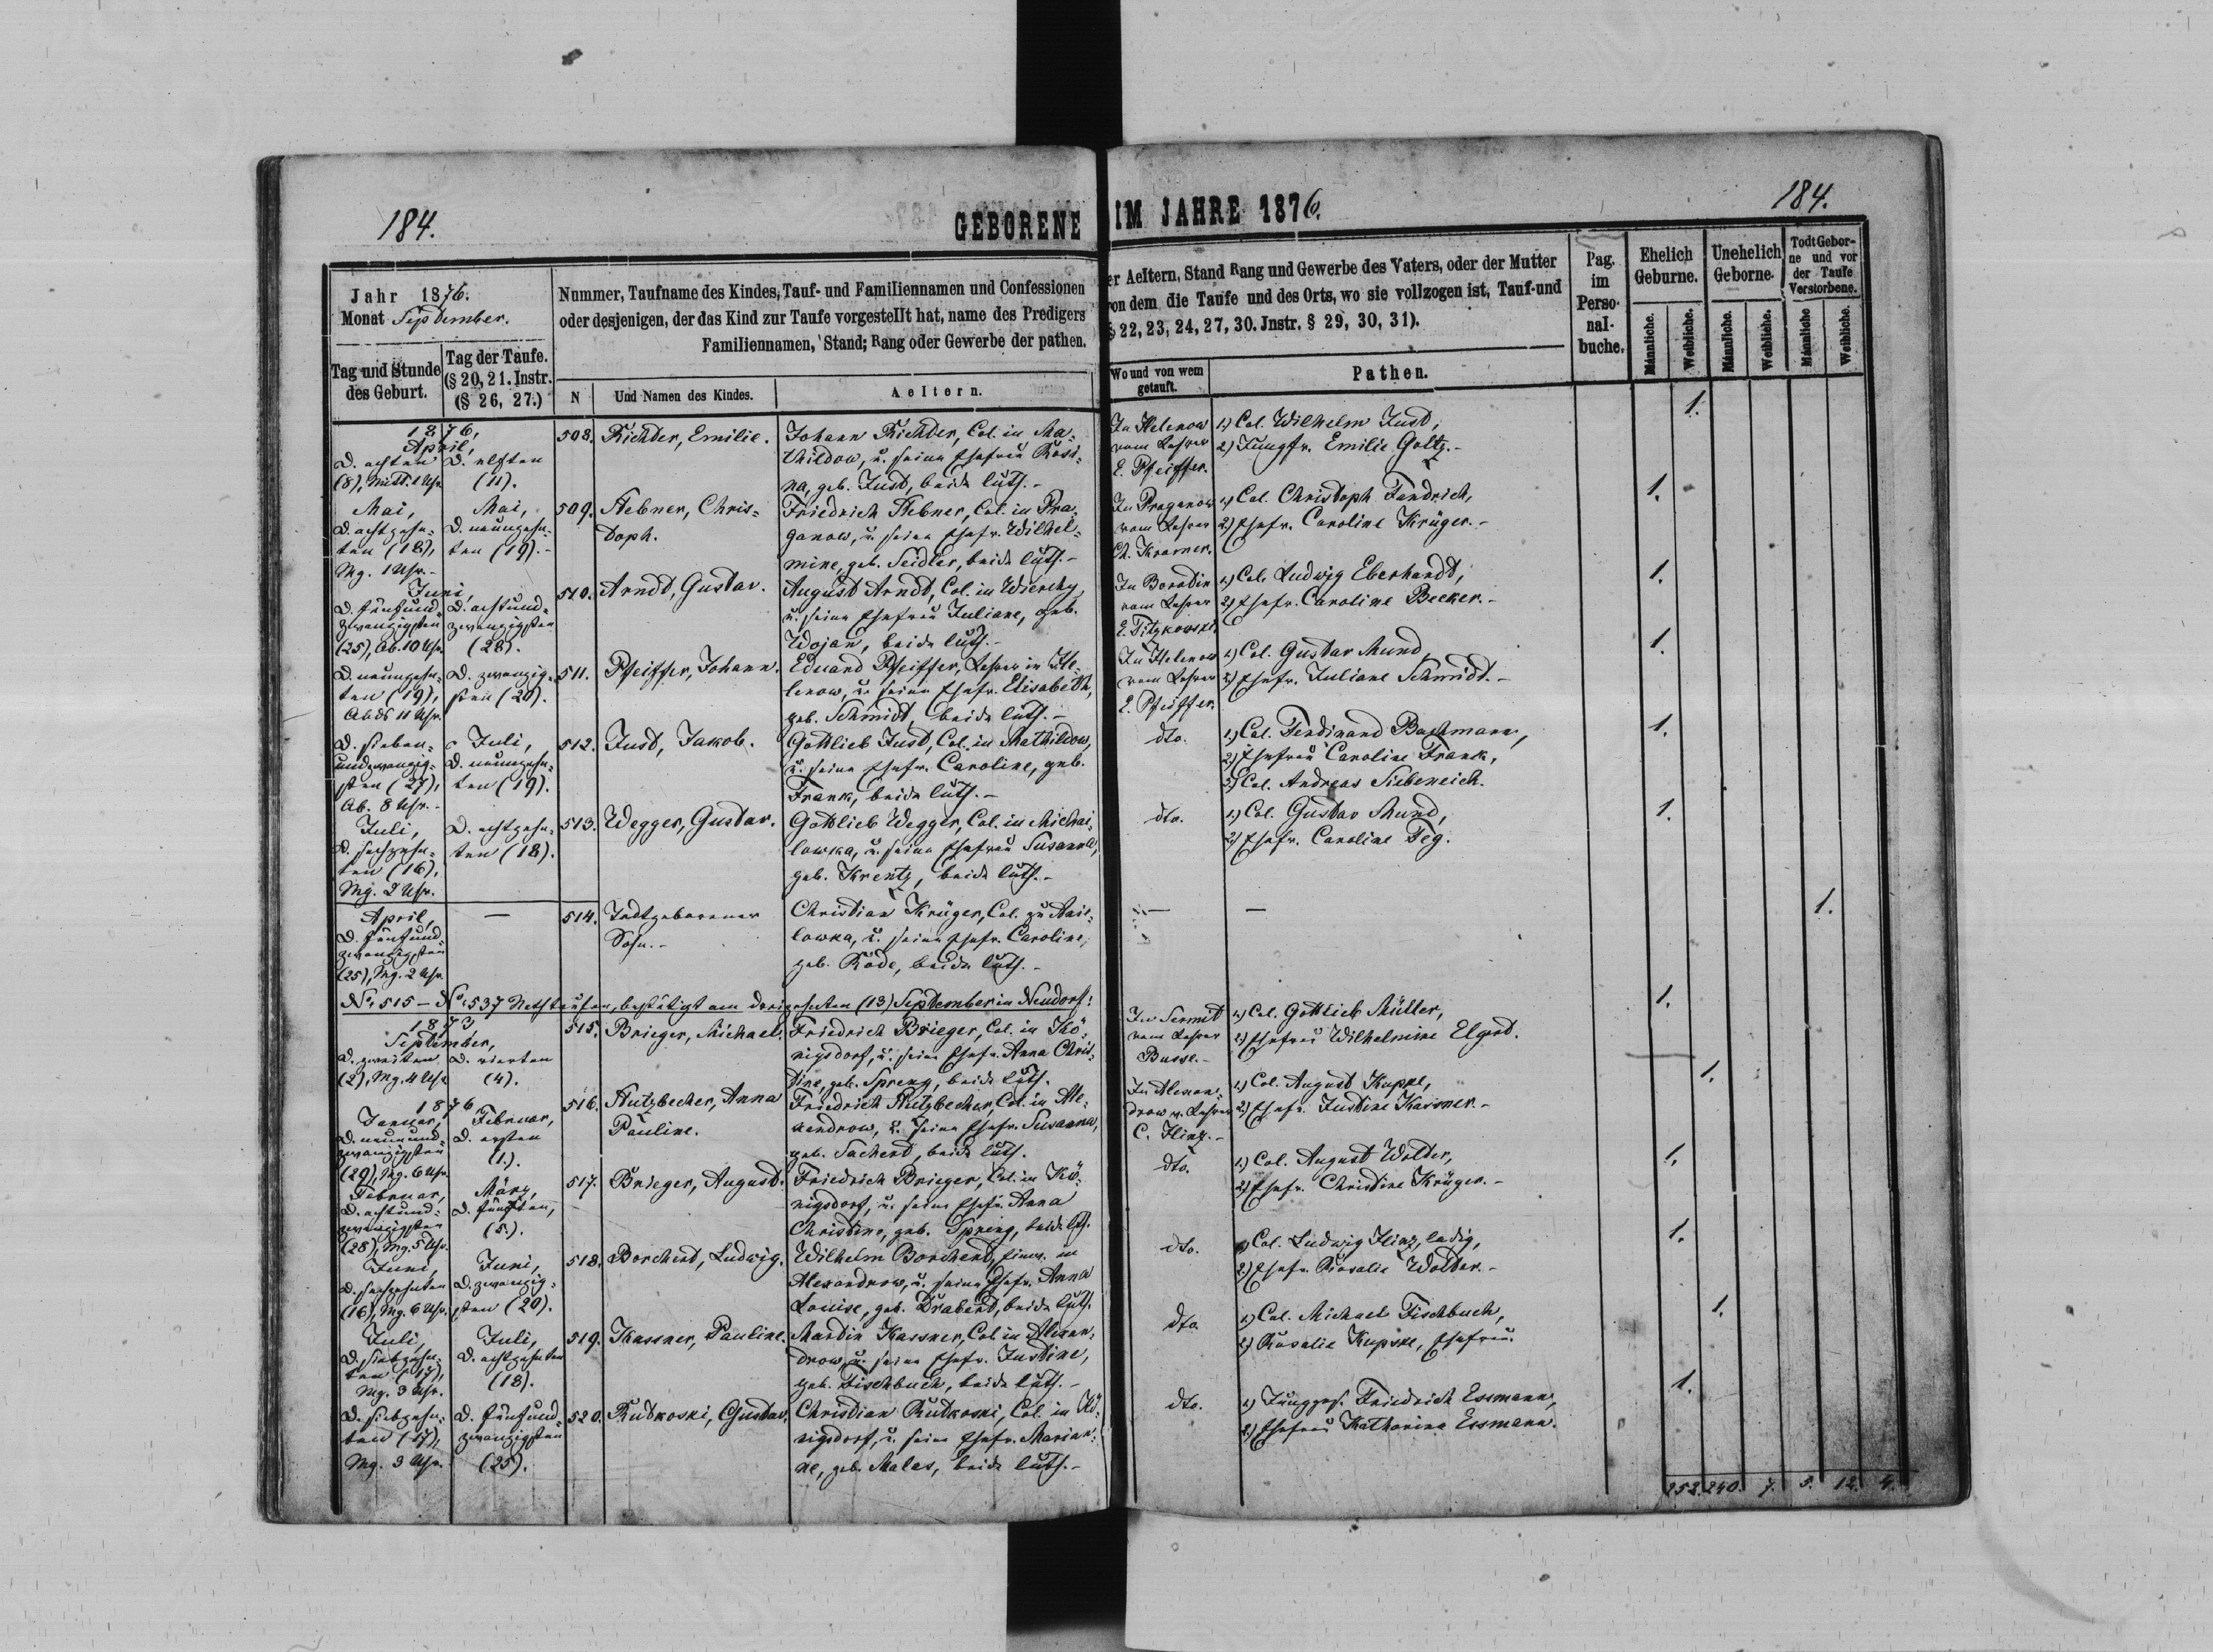 184.
GEBORENE
Jahr 1876.
Monat September.
Nummer, Taufname des Kindes, Tauf- und Familiennamen und Confessionen
oder desjenigen, der das Kind zur Taufe vorgestellt hat, name des Predigers
Familiennamen, Stand; Rang oder Gewerbe der pathen.
Tag und Stunde
des Geburt.
Tag der Taufe.
(§ 20, 21. Instr.
(§ 26, 27.)
N
Und Namen des Kindes.
Aeltern.
1876,
April,
D. achten
(8), Mitt. 1 Uhr
D. elften
(11).
508.
Richter, Emilie.
Johann Richter, Col. in Ma-
thildow, u. seine Ehefrau Rosi-
na, geb. Just, beide luth.-
Mai,
D. achtzehn-
ten (18),
Mg. 1 Uhr.-
Mai,
D. neunzehn-
ten (19).-
509.
Hebner, Chris-
toph.
Friedrich Hebner, Col. in Pra-
ganow, u. seine Ehefr. Wilhel-
mine, geb. Seidler, beide luth.-
Juni,
D. fünfund-
zwanzigsten
(25), Ab. 10 Uhr.
D. achtund-
zwanzigsten
(28).
510.
Arndt, Gustav.
August Arndt, Col. in Wierchy,
u. seine Ehefrau Juliane, geb.
Wojan, beide luth.-
D. neunzehn-
ten (19),
Abds 11 Uhr.
D. zwanzig-
sten (20).
511.
Pfeiffer, Johann.
Eduard Pfeiffer, Lehrer in He-
lenow, u. seine Ehefr. Elisabeth,
geb. Schmidt, beide luth.-
D. sieben-
undzwanzig-
sten (27),
Ab. 8 Uhr.-
Juli,
D. neunzehn-
ten (19).
512.
Just, Jakob.
Gottlieb Just, Col. in Mathildow,
u. seine Ehefr. Caroline, geb.
Frank, beide luth.-
Juli,
D. sechzehn-
ten (16),
Mg. 2 Uhr.
D. achtzehn-
ten (18).
513.
Wegger, Gustav.
Gottlieb Wegger, Col. in Michai-
lowka, u. seine Ehefrau Susanna,
geb. Krentz, beide luth.-
April,
D. fünfund-
zwanzigsten
(25), Mg. 2 Uhr.
—
514.
Todtgeborener
Sohn.-
Christian Krüger, Col. zu
lowka, u. seine Ehefr. Caroline,
geb. Rode, beide luth.-
No 515 — No 537 Nothtaufen, bestätigt am dreizehnten (13) September in Neudorf:
1873,
September,
D. zweiten
(2), Mg. 4 Uhr
D. vierten
(4).
515.
Brieger, Michael.
Friedrich Brieger, Col. in Kö-
nigsdorf, u. seine Ehefr. Anna Chris-
tine, geb. Spreng, beide luth.
1876
Januar,
D. neunund-
zwanzigsten
(29), Mg. 6 Uhr
Februar,
D. ersten
(1.).
516.
Stutzbecher, Anna
Pauline.
Friedrich Stutzbecher, Col. in Ale-
xandrow, u. seine Ehefr. Susanna,
geb. Sachert, beide luth.
Februar,
D. achtund-
zwanzigsten
(28), Mg. 5 Uhr.
März,
D. fünften,
(5.).
517.
Brieger, August.
Friedrich Brieger, Col. in Kö-
nigsdorf, u. seine Ehefr. Anna
Christine, geb. Spreng, beide lth.
Juni,
D. sechzehnten
(16), Mg. 6 Uhr.
Juni,
D. zwanzig-
sten (20).
518.
Borchert, Ludwig.
Wilhelm Borchert, Einw. in
Alexandrow, u. seine Ehefr. Anna
Louise, geb. Drabent, beide luth.
Juli,
D. siebzehn-
ten (17),
Mg. 3 Uhr.
Juli,
D. achtzehnten
(18).
519.
Kassner, Pauline.
Martin Kassner, Col. in Alexan-
drow, u. seine Ehefr. Justine,
geb. Fischbuch, beide luth.-
D. siebzehn-
ten (17),
Mg. 3 Uhr.
D. fünfund-
zwanzigsten
(25).
520.
Rutkoski, Gustav.
Christian Rutkoski, Col. in Kö-
nigsdorf, u. seine Ehefr. Marian-
ne, geb. Malas, beide luth.-
IM JAHRE 1876.
184.
er Aeltern, Stand Rang und Gewerbe des Vaters, oder der Mutter
von dem die Taufe und des Orts, wo sie vollzogen ist, Tauf-und
§ 22, 23, 24, 27, 30. Jnstr. § 29, 30, 31).
Wo und von wem
getauft.
Pathen.
Pag.
im
Perso-
nal-
buche.
Ehelich
Geburne.
Unehelich
Geborne.
Todt Gebor-
ne und vor
der Taufe
Verstorbene.
Männliche.
Weibliche.
Männliche.
Weibliche.
Männliche
Weibliche.
In Helenow
vom Lehrer
E. Pfeiffer.
1) Col. Wilhelm Just,
2) Jungfr. Emilie Goltz.-
1.
In Praganow
vom Lehrer
Ch. Kramer.
1) Col. Christoph Fendrich,
2) Ehefr. Caroline Krüger.-
1.
In Borodin
vom Lehrer
E. Titzkowski.
1) Col. Ludwig Eberhardt,
2) Ehefr. Caroline Becker.-
1.
In Helenow
vom Lehrer
E. Pfeiffer.
1) Col. Gustav Mund,
2) Ehefr. Juliane Schmidt.-
1.
dto.
1) Col. Ferdinand Bachmann,
2) Ehefrau Caroline Frank,
3) Col. Andreas Siebeneich.
1.
dto.
1) Col. Gustav Mund,
2) Ehefr. Caroline Feg.
1.
—
—
1.
In Sermit
vom Lehrer
Busse.-
1) Col. Gottlieb Müller,
2) Ehefrau Wilhelmine Elgert.
1.
In Alexan-
drow v. Lehrer
C. Hinz.-
1) Col. August Kupke,
2) Ehefr. Justine Kassner.-
1.
dto.
1) Col. August Wolter,
2) Ehefr. Christine Krüger.-
1.
dto.
1) Col. Ludwig Hinz, ledig,
2) Ehefr. Rosalie Wolter.-
1.
dto.
1) Col. Michael Fischbuch,
2) Rosalie Kupske, Ehefrau.
1.
dto.
1) Jungges. Friedrich Essmann,
2) Ehefrau Katharina Essmann.
1.
252. 240. 7. 5. 12. 4.